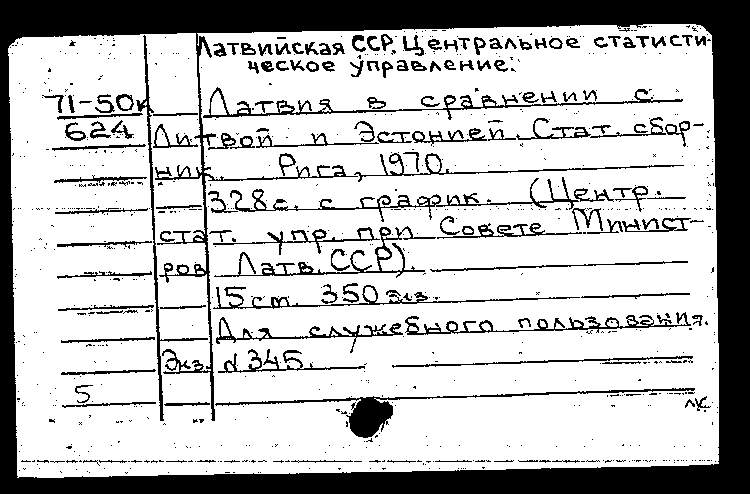 Латвийская ССР. Центральное статисти-
ческое управление.
71-50к
624
Латвия в сравнении с
Литвой и Эстонией. Стат. сбор-
ник. Рига, 1970.
328с. с график. (Центр.
стат. упр. при Совете Минист-
ров Латв. ССР).
15 см. 350 экз.
Для служебного пользования.
Экз. № 345.
5
лк.